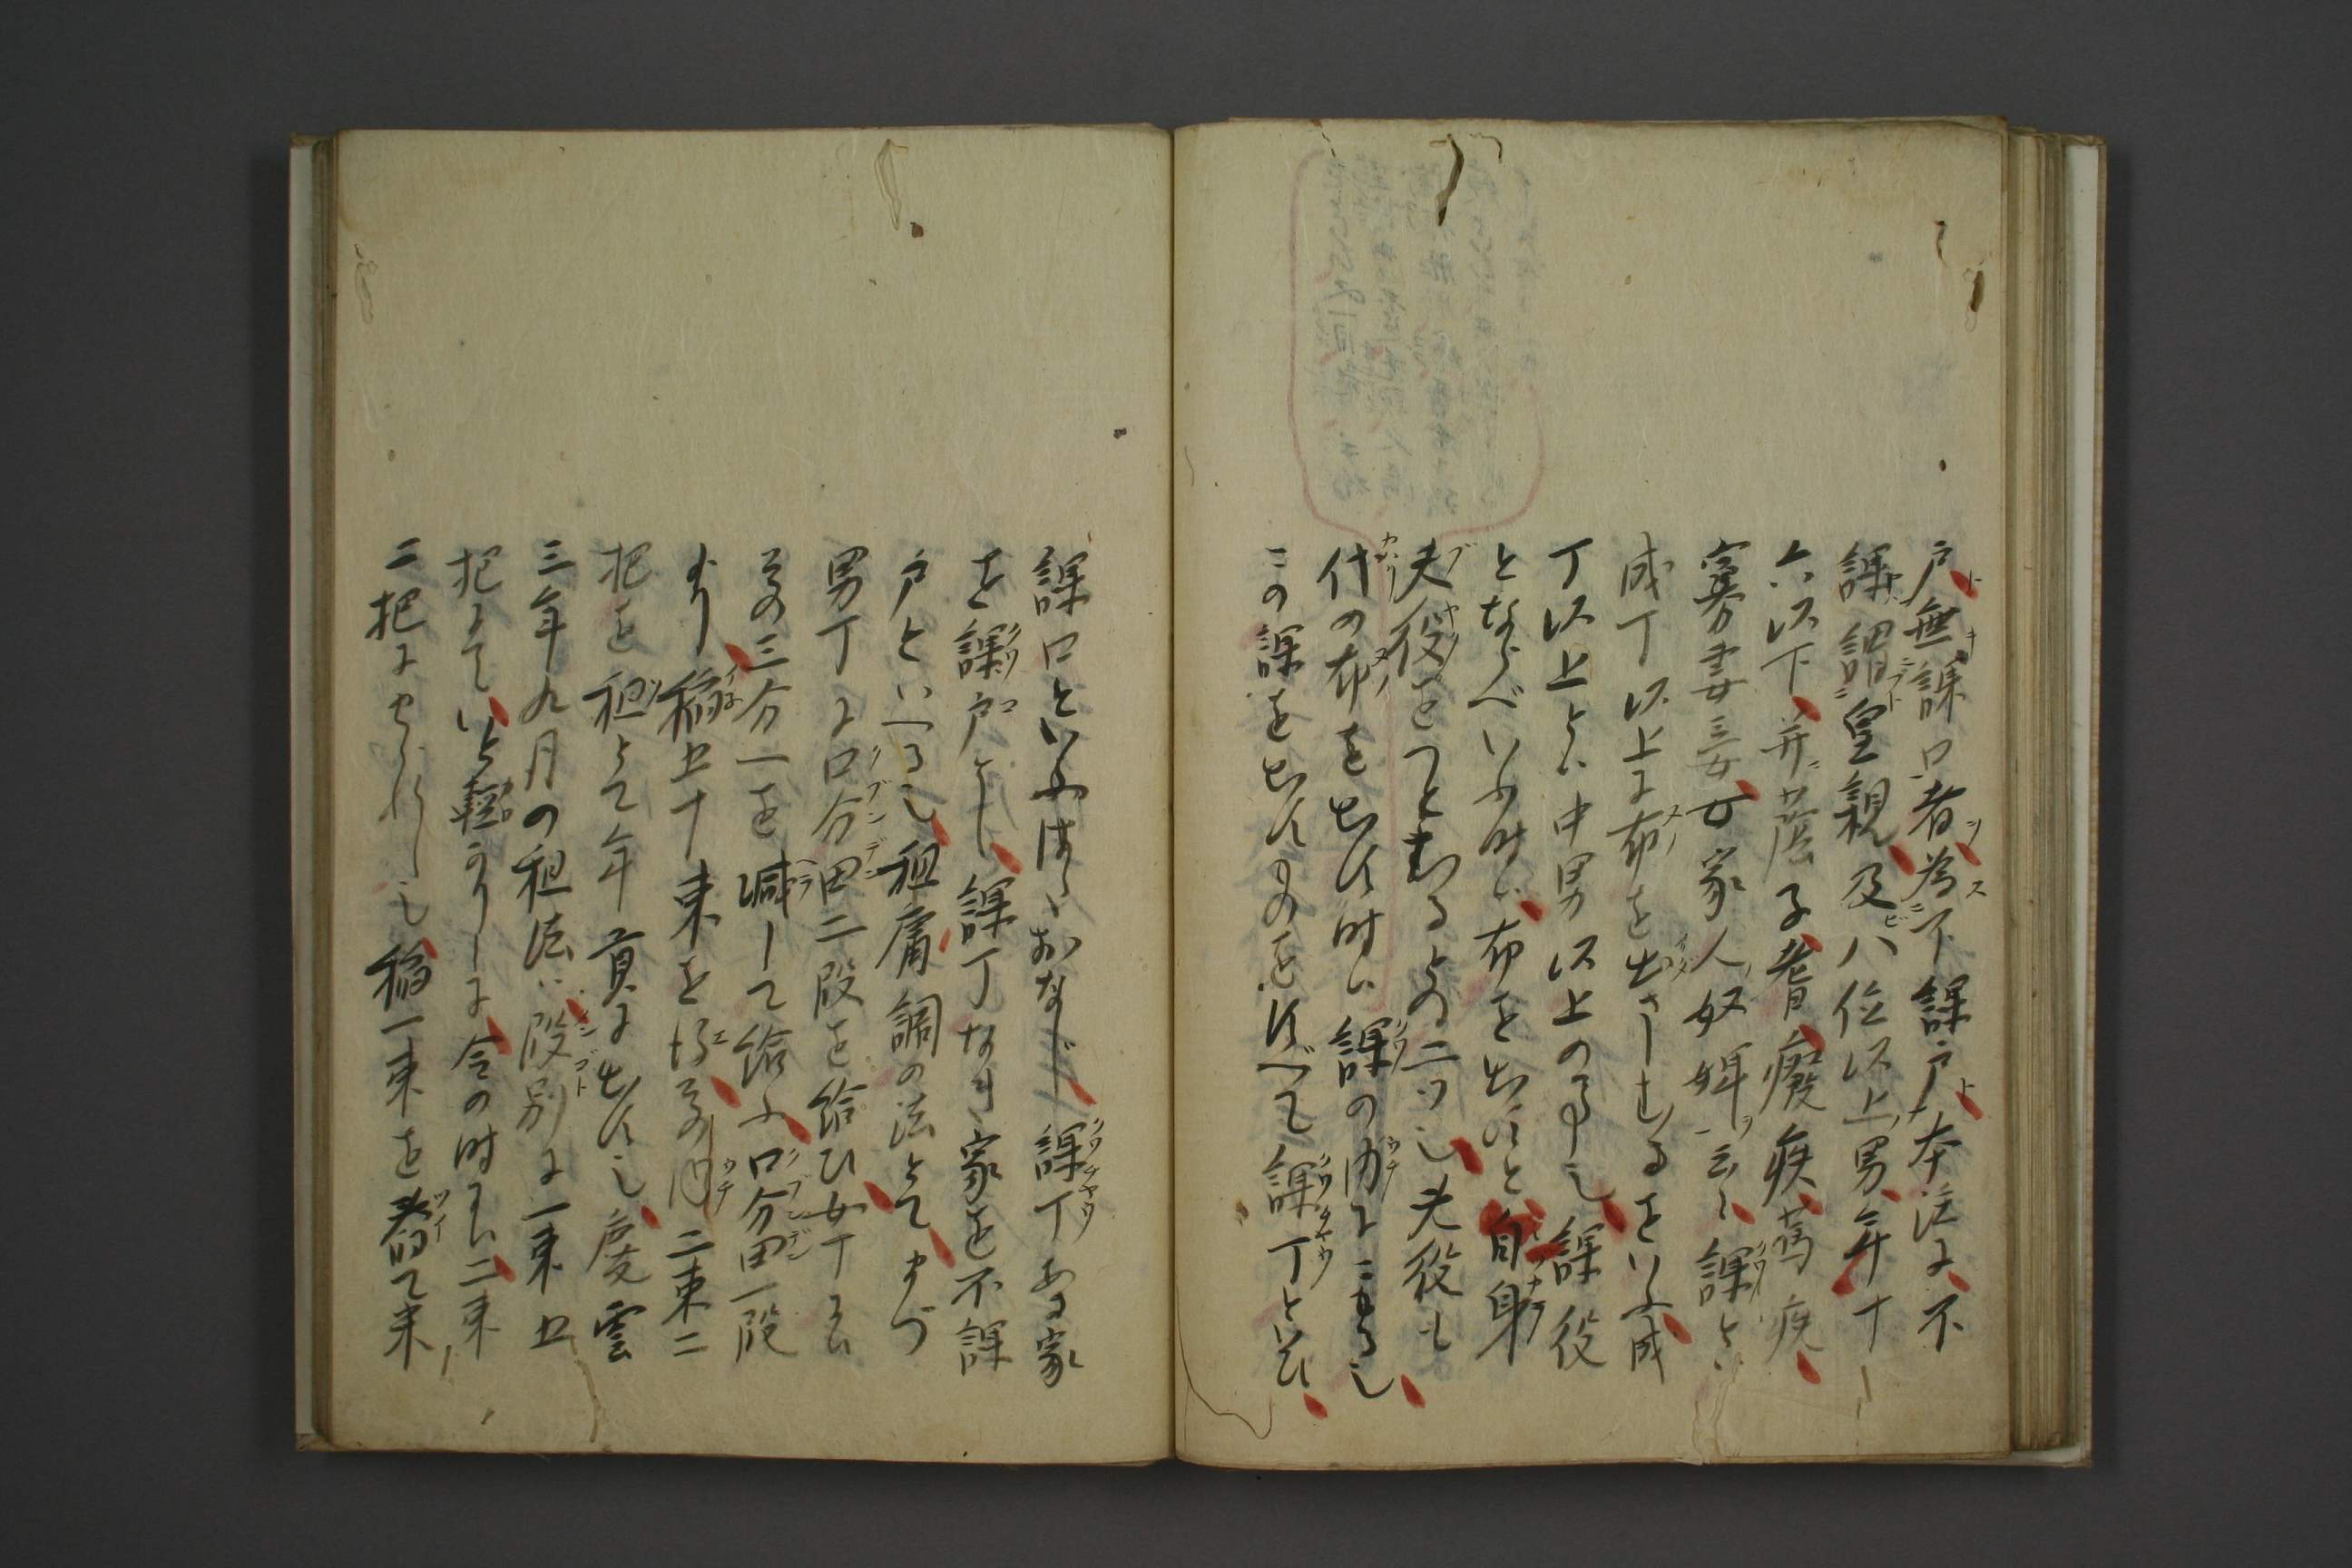 戸無課口者為不課戸本注に不
課謂皇親及八位以上男年十
六以下并蔭子耆癈疾篤疾
寡妻妾女家人奴婢云々課とハ
成丁以上に布を出さしむるをいふ成
丁以上とハ中男以上の事也課役
とならべいふ時ハ布を出すと自身
夫役をつとむるとの二ツ也夫役も
代の布を出す時ハ課の内にこもる也
この課を出すものをすべて課丁といひ
課口といふはおなじ課丁ある家
を課戸とし課丁なき家を不課
戸といへる也租庸調の法とてまづ
男丁に口分田二段を給ひ女丁にハ
その三分一を減して給ふ口分田一段
より稲五十束を得その内二束二
把を租とて年貢に出す也慶雲
三年九月の租法ハ段別に一束五
把にていと軽かりしに令の時にハ二束
二把にせられし也稲一束を舂て米